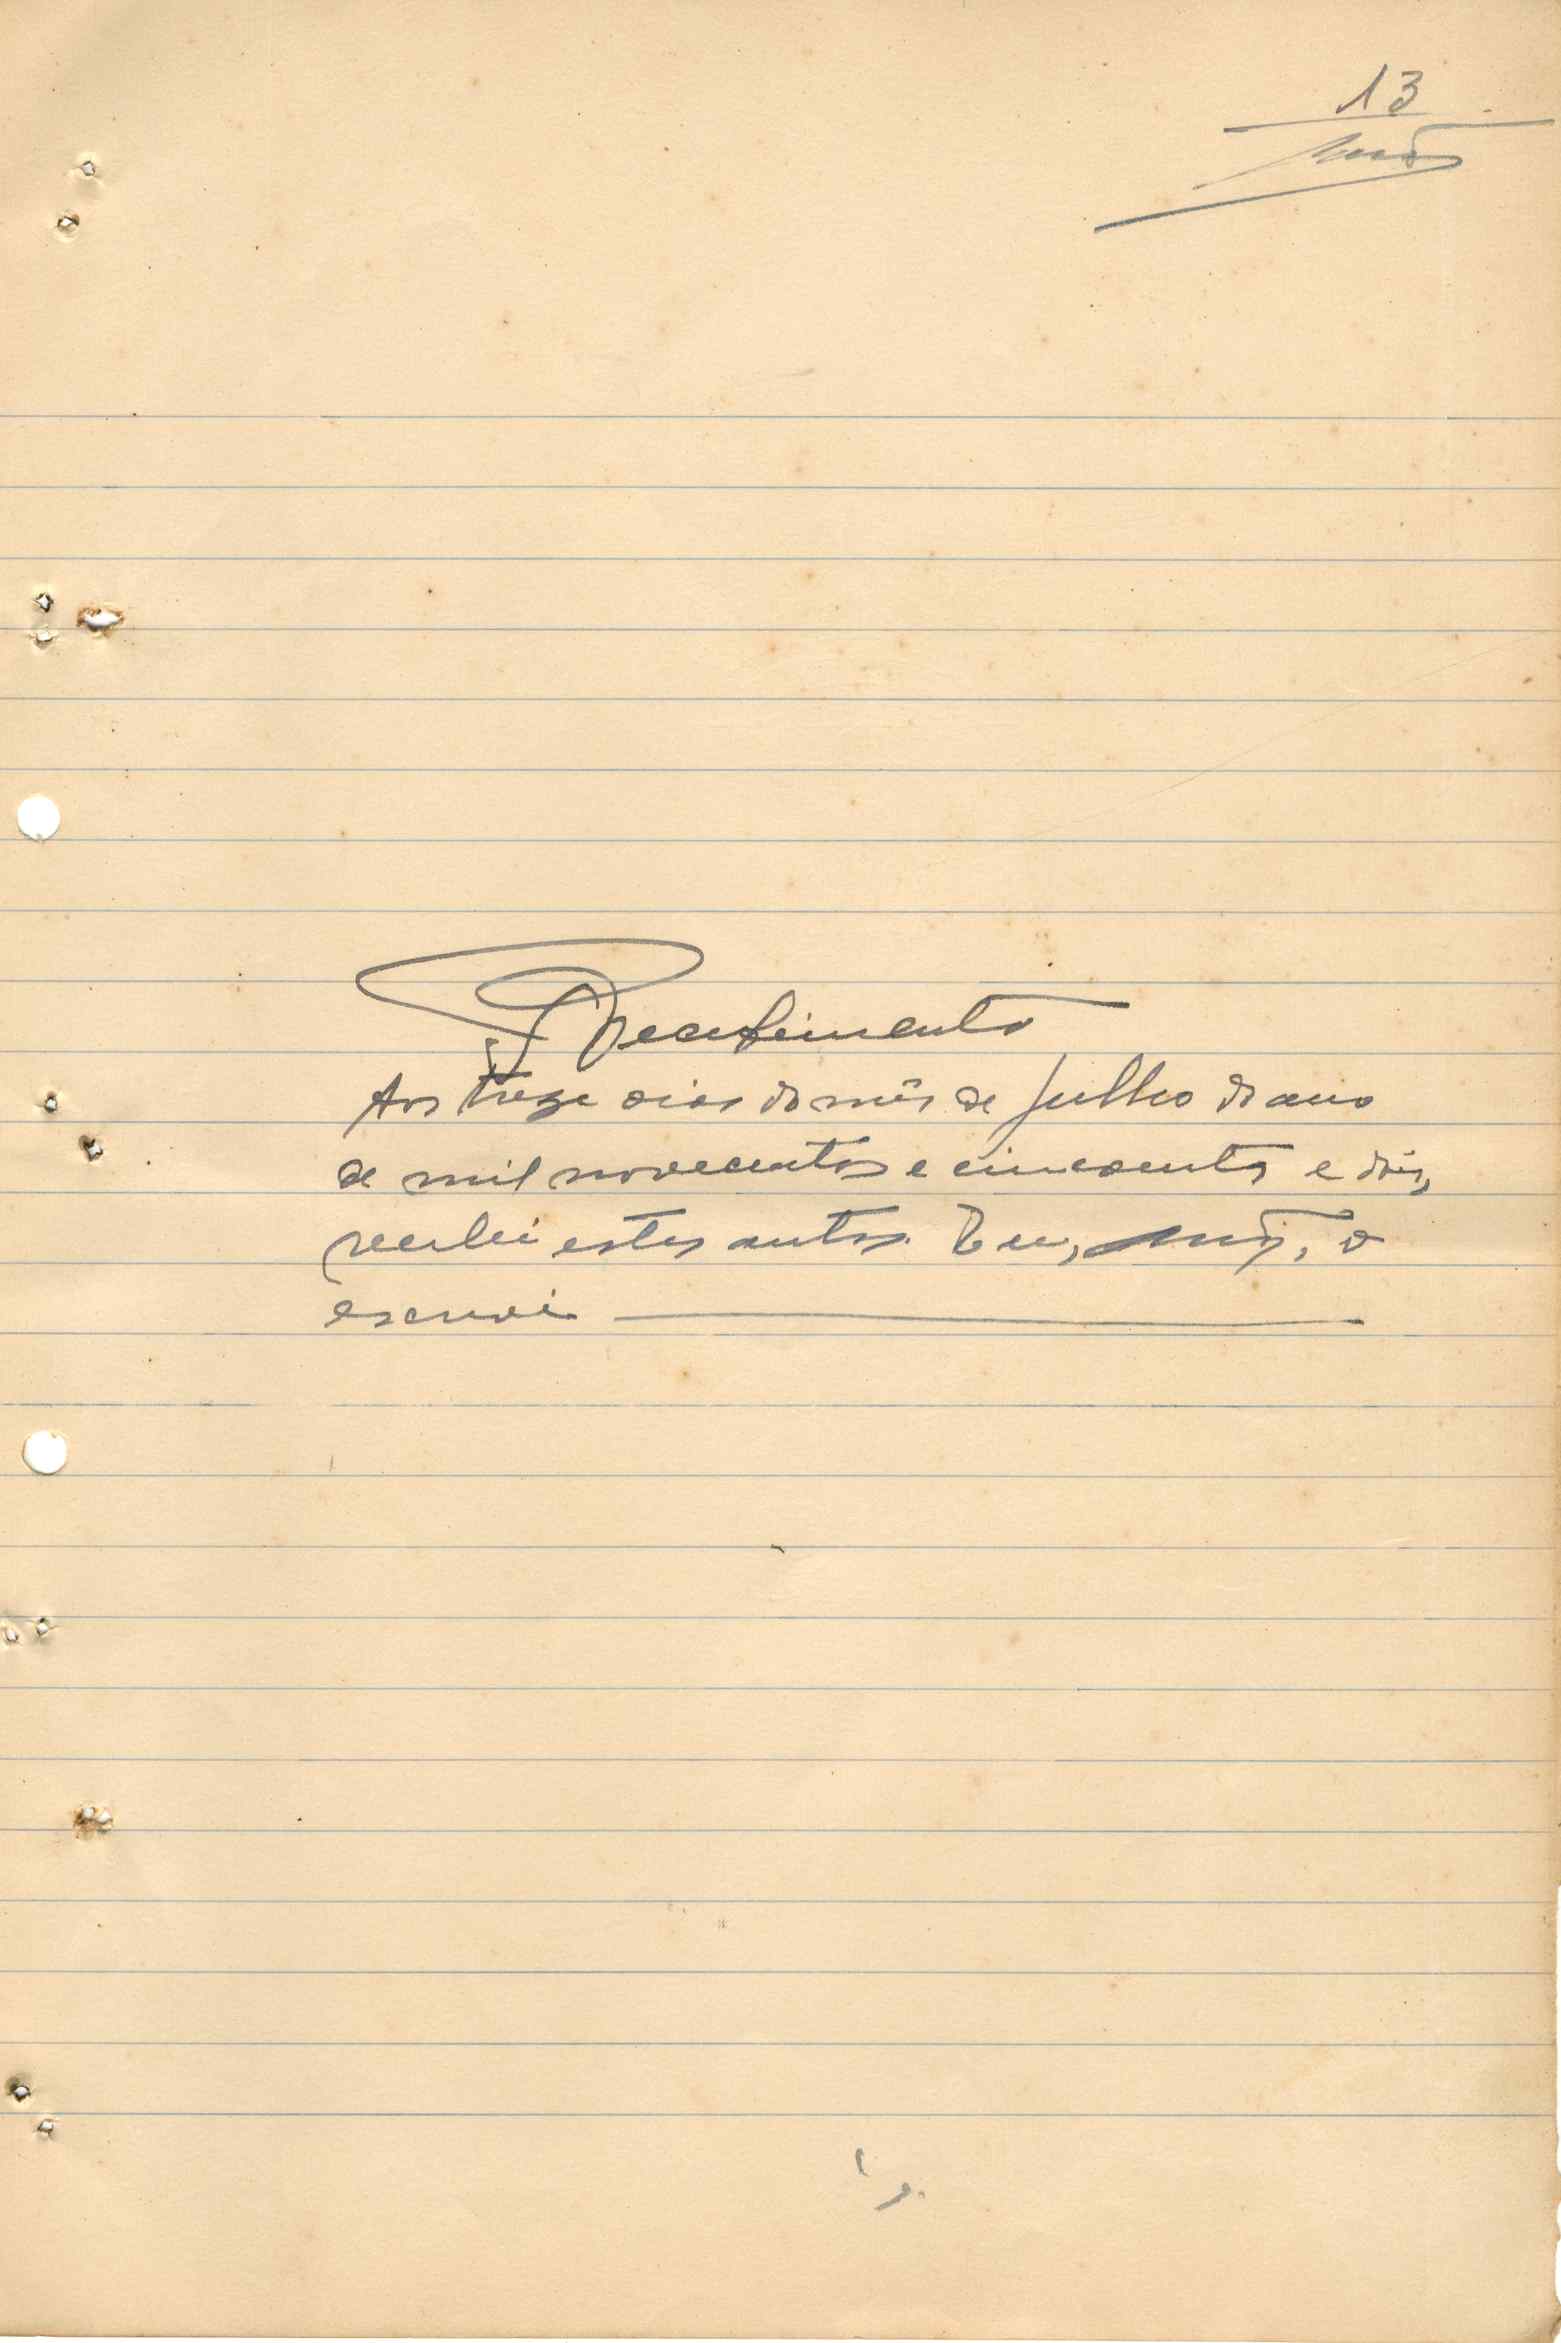 13
Recebimento
Aos treze dias do mês de julho do ano
de mil novecentos e cincoenta e dois,
recebi estes autos. Eu, o
escrevi